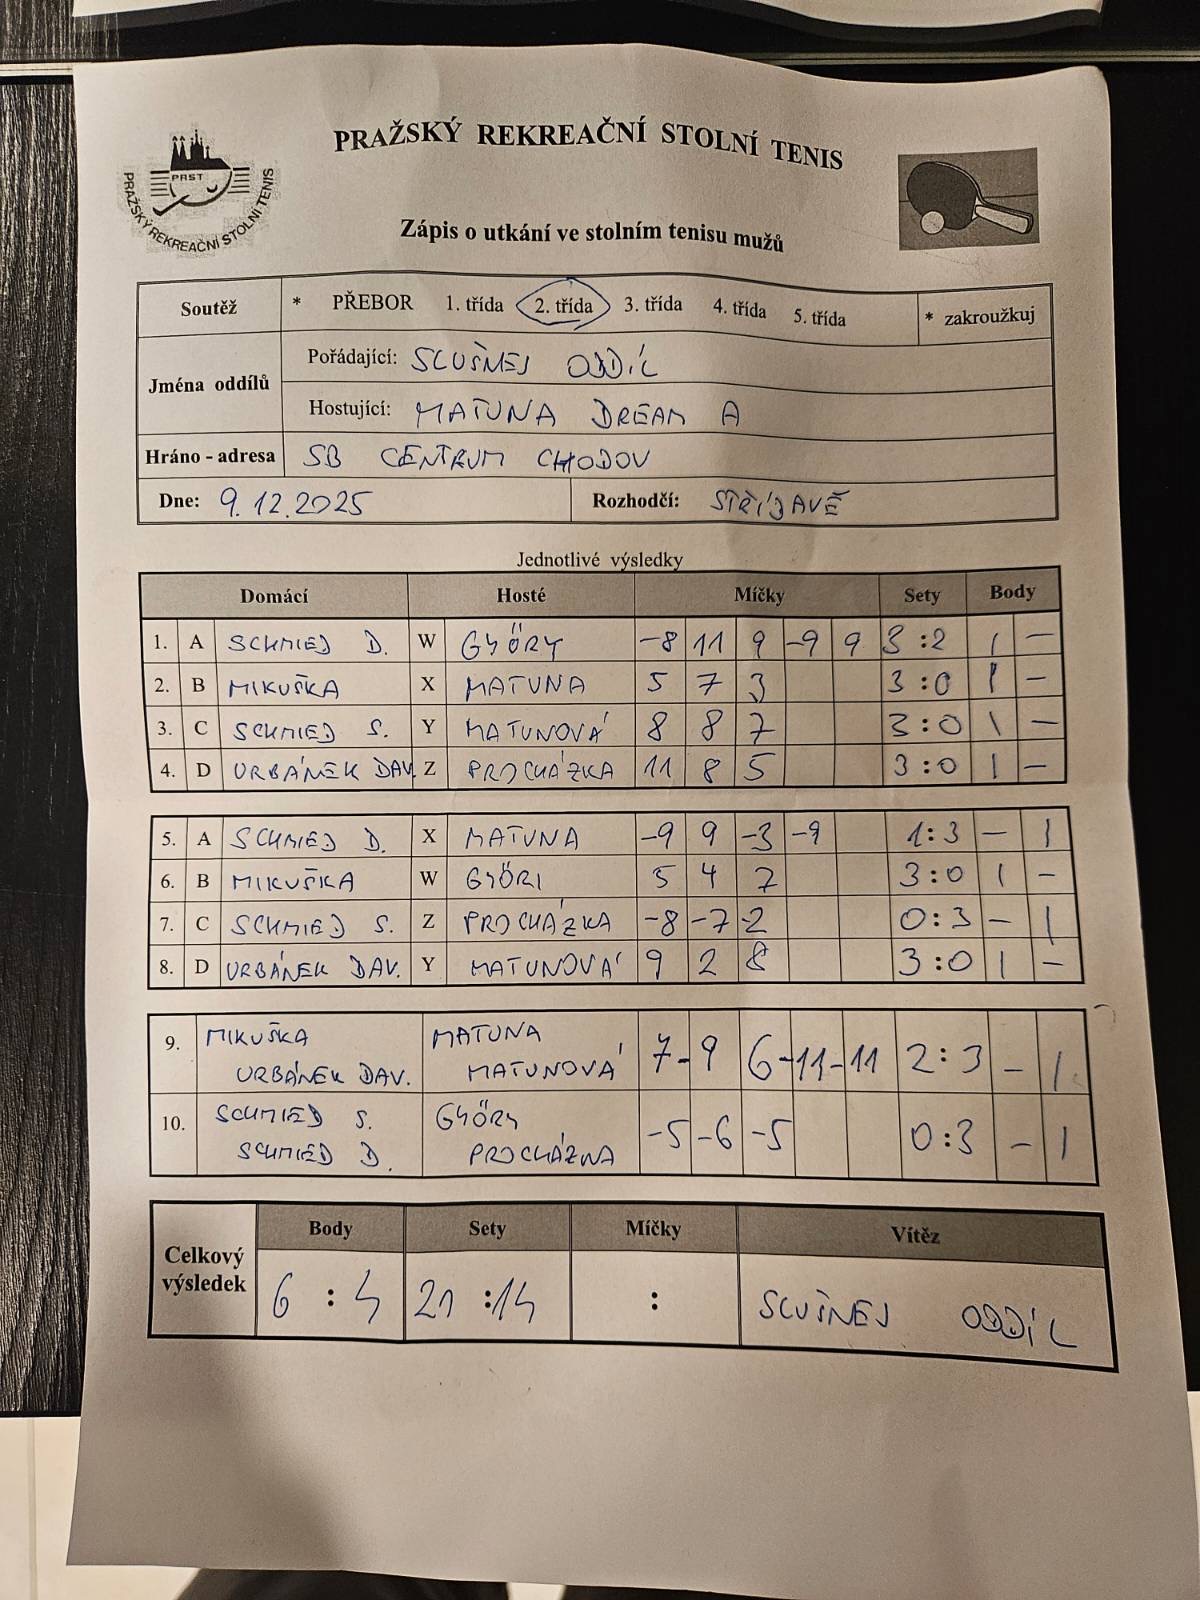 PRAŽSKÝ REKREAČNÍ STOLNÍ TENIS
PRST
PRAŽSKÝ REKREAČNÍ STOLNÍ TENIS
Zápis o utkání ve stolním tenisu mužů
Soutěž * PŘEBOR 1. třída 2. třída 3. třída 4. třída 5. třída * zakroužkuj
Jména oddílů
Pořádající: SLUŠNEJ ODDÍL
Hostující: MATUNA DREAM A
Hráno - adresa SB CENTRUM CHODOV
Dne: 9.12.2025 Rozhodčí: STŘÍDAVĚ
Jednotlivé výsledky
Domácí Hosté Míčky Sety Body
1. A SCHMIED D. W GYŐRY -8 11 9 -9 9 3:2 1 -
2. B MIKUŠKA X MATUNA 5 7 3 3:0 1 -
3. C SCHMIED S. Y MATUNOVÁ 8 8 7 3:0 1 -
4. D URBÁNEK DAV. Z PROCHÁZKA 11 8 5 3:0 1 -
5. A SCHMIED D. X MATUNA -9 9 -3 -9 1:3 - 1
6. B MIKUŠKA W GYŐRI 5 4 7 3:0 1 -
7. C SCHMIED S. Z PROCHÁZKA -8 -7 -2 0:3 - 1
8. D URBÁNEK DAV. Y MATUNOVÁ 9 2 8 3:0 1 -
9. MIKUŠKA MATUNA 7 -9 6 -11 -11 2:3 - 1
URBÁNEK DAV. MATUNOVÁ
10. SCHMIED S. GYŐRY -5 -6 -5 0:3 - 1
SCHMIED D. PROCHÁZKA
Body Sety Míčky Vítěz
Celkový výsledek 6 : 4 21 : 14 : SLUŠNEJ ODDÍL